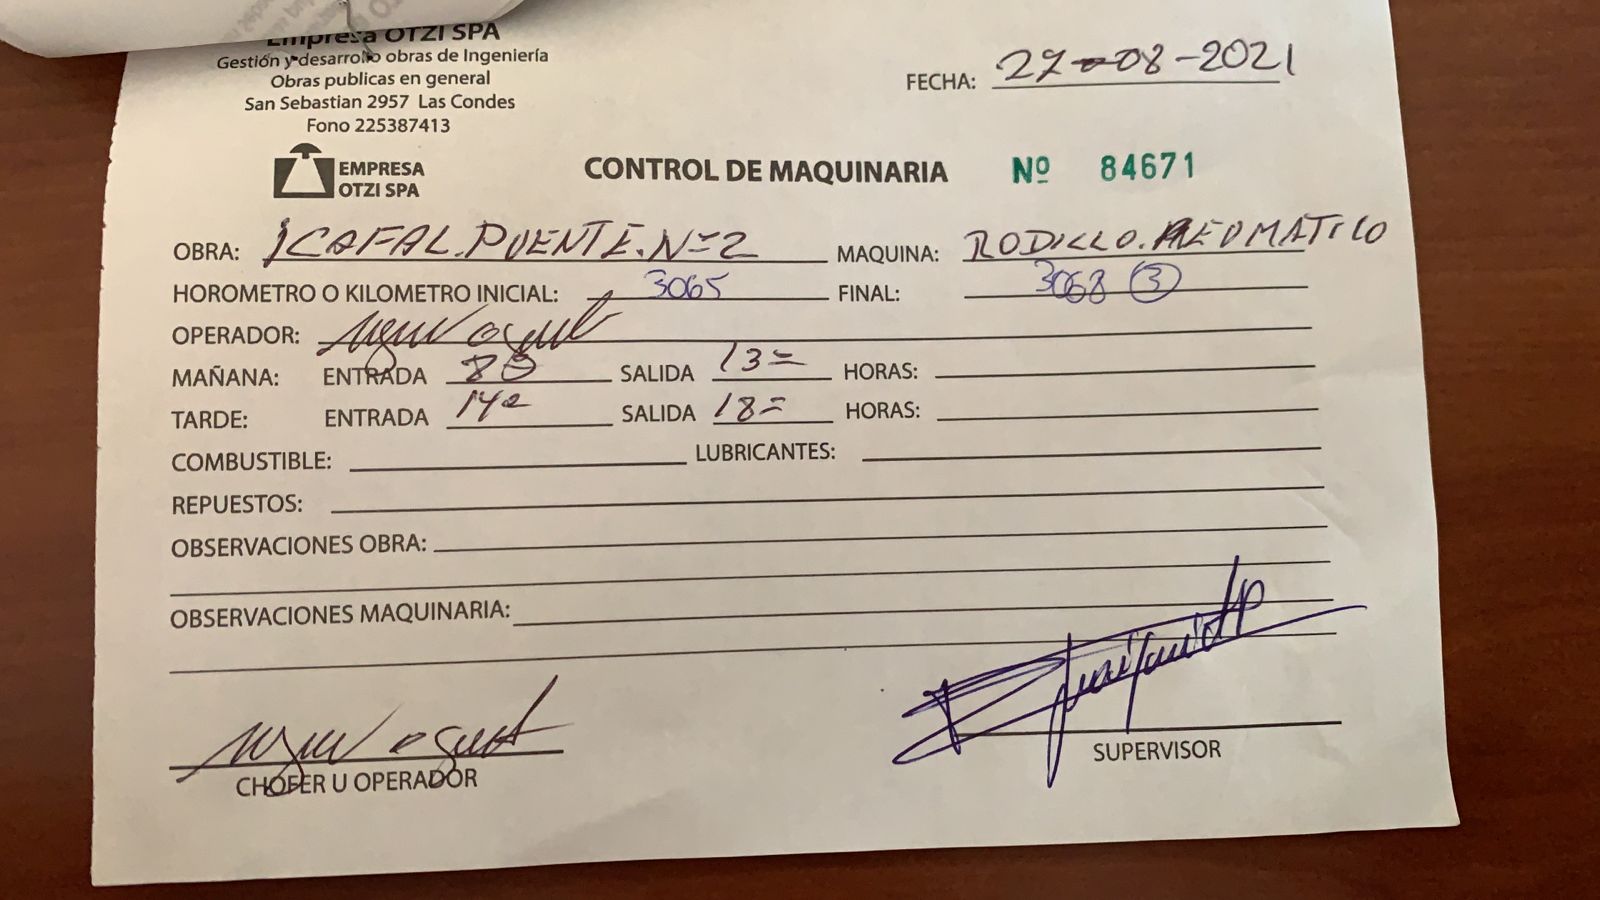 Empresa OTZI SPA
Gestión y desarrollo obras de Ingeniería
Obras publicas en general
San Sebastian 2957 Las Condes
Fono 225387413
FECHA: 27-08-2021
EMPRESA
OTZI SPA
CONTROL DE MAQUINARIA Nº 84671
OBRA: ICAFAL.PUENTE.Nº2 MAQUINA: RODILLO.NEUMATICO
HOROMETRO O KILOMETRO INICIAL: 3065 FINAL: 3068 (3)
OPERADOR:
MAÑANA: ENTRADA 8 SALIDA 13= HORAS:
TARDE: ENTRADA 14 SALIDA 18= HORAS:
COMBUSTIBLE: LUBRICANTES:
REPUESTOS:
OBSERVACIONES OBRA:
OBSERVACIONES MAQUINARIA:
CHOFER U OPERADOR
SUPERVISOR